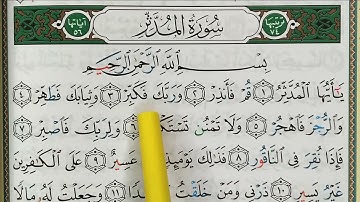 ترتيبها ٧٤ سورة المدثر آياتها ٥٦
بِسْمِ اللَّهِ الرَّحْمَٰنِ الرَّحِيمِ
يَا أَيُّهَا الْمُدَّثِّرُ ١ قُمْ فَأَنذِرْ ٢ وَرَبَّكَ فَكَبِّرْ ٣ وَثِيَابَكَ فَطَهِّرْ ٤
وَالرُّجْزَ فَاهْجُرْ ٥ وَلَا تَمْنُن تَسْتَكْثِرُ ٦ وَلِرَبِّكَ فَاصْبِرْ ٧
فَإِذَا نُقِرَ فِي النَّاقُورِ ٨ فَذَٰلِكَ يَوْمَئِذٍ عَسِيرٌ ٩ عَلَى الْكَافِرِينَ
غَيْرُ يَسِيرٍ ١٠ ذَرْنِي وَمَنْ خَلَقْتُ وَحِيدًا ١١ وَجَعَلْتُ لَهُ مَالًا